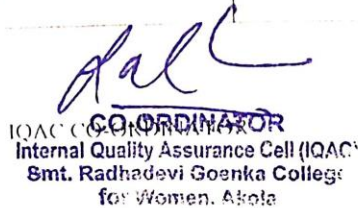 IQAC CO-ORDINATOR
CO-ORDINATOR
Internal Quality Assurance Cell (IQAC)
Smt. Radhadevi Goenka College
for Women, Akola